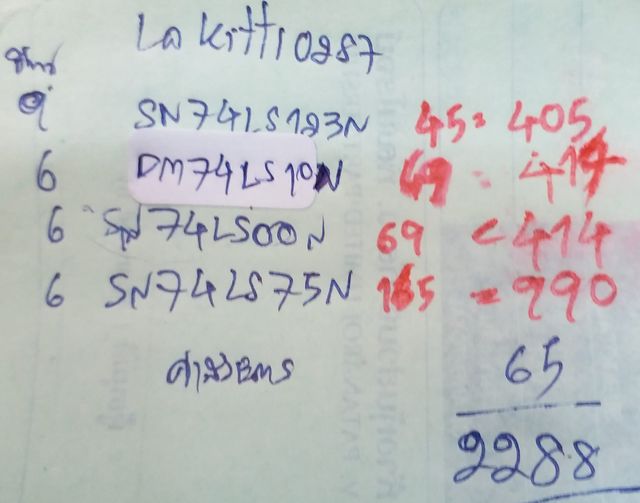 Lakitti0287
9 SN74LS123N 45 = 405
6 DM74LS10N 69 - 414
6 SN74LS00N 69 = 414
6 SN74LS75N 165 = 990
65
2288